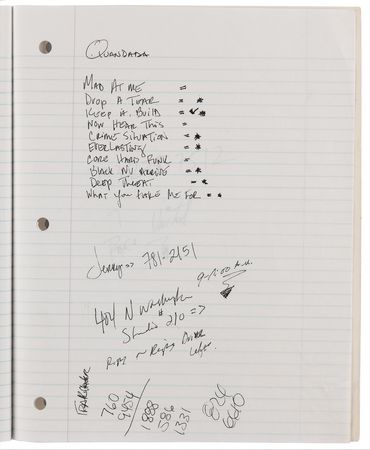 QUANDARA
MAD AT ME =
DROP A TEAR = *
KEEP IT BUILD = ✓*
NOW HEAR THIS =
CRIME SITUATION = *
EVERLASTING = *
CORE HARD FUNK =
BLACK NU = *
DEEP THREAT = *
WHAT YOU TAKE ME FOR = *
Jerry => 781-2151
9-1:00 A.M.
404 N Washington
Studio # 210 =>
Right
760
9454
1888
586
1331
824
660